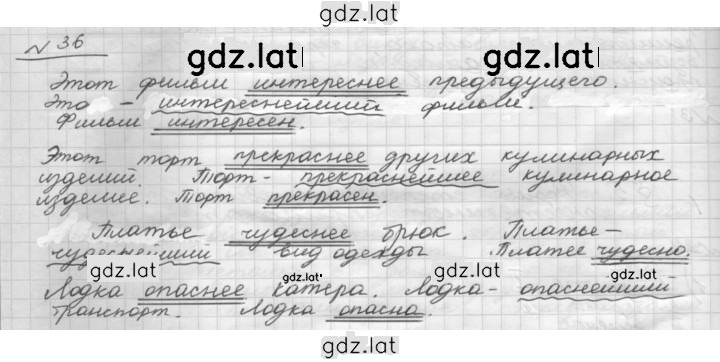 gdz.lat
№ 36
gdz.lat gdz.lat
Этот фильм интереснее предыдущего.
Это - интереснейший фильм.
Фильм интересен.
Этот торт прекраснее других кулинарных
изделий. Торт - прекраснейшее кулинарное
изделие. Торт прекрасен.
Платье чудеснее брюк. Платье -
чудеснейший вид одежды. Платье чудесно.
gdz.lat gdz.lat gdz.lat
Лодка опаснее катера. Лодка - опаснейший
транспорт. Лодка опасна.
gdz.lat